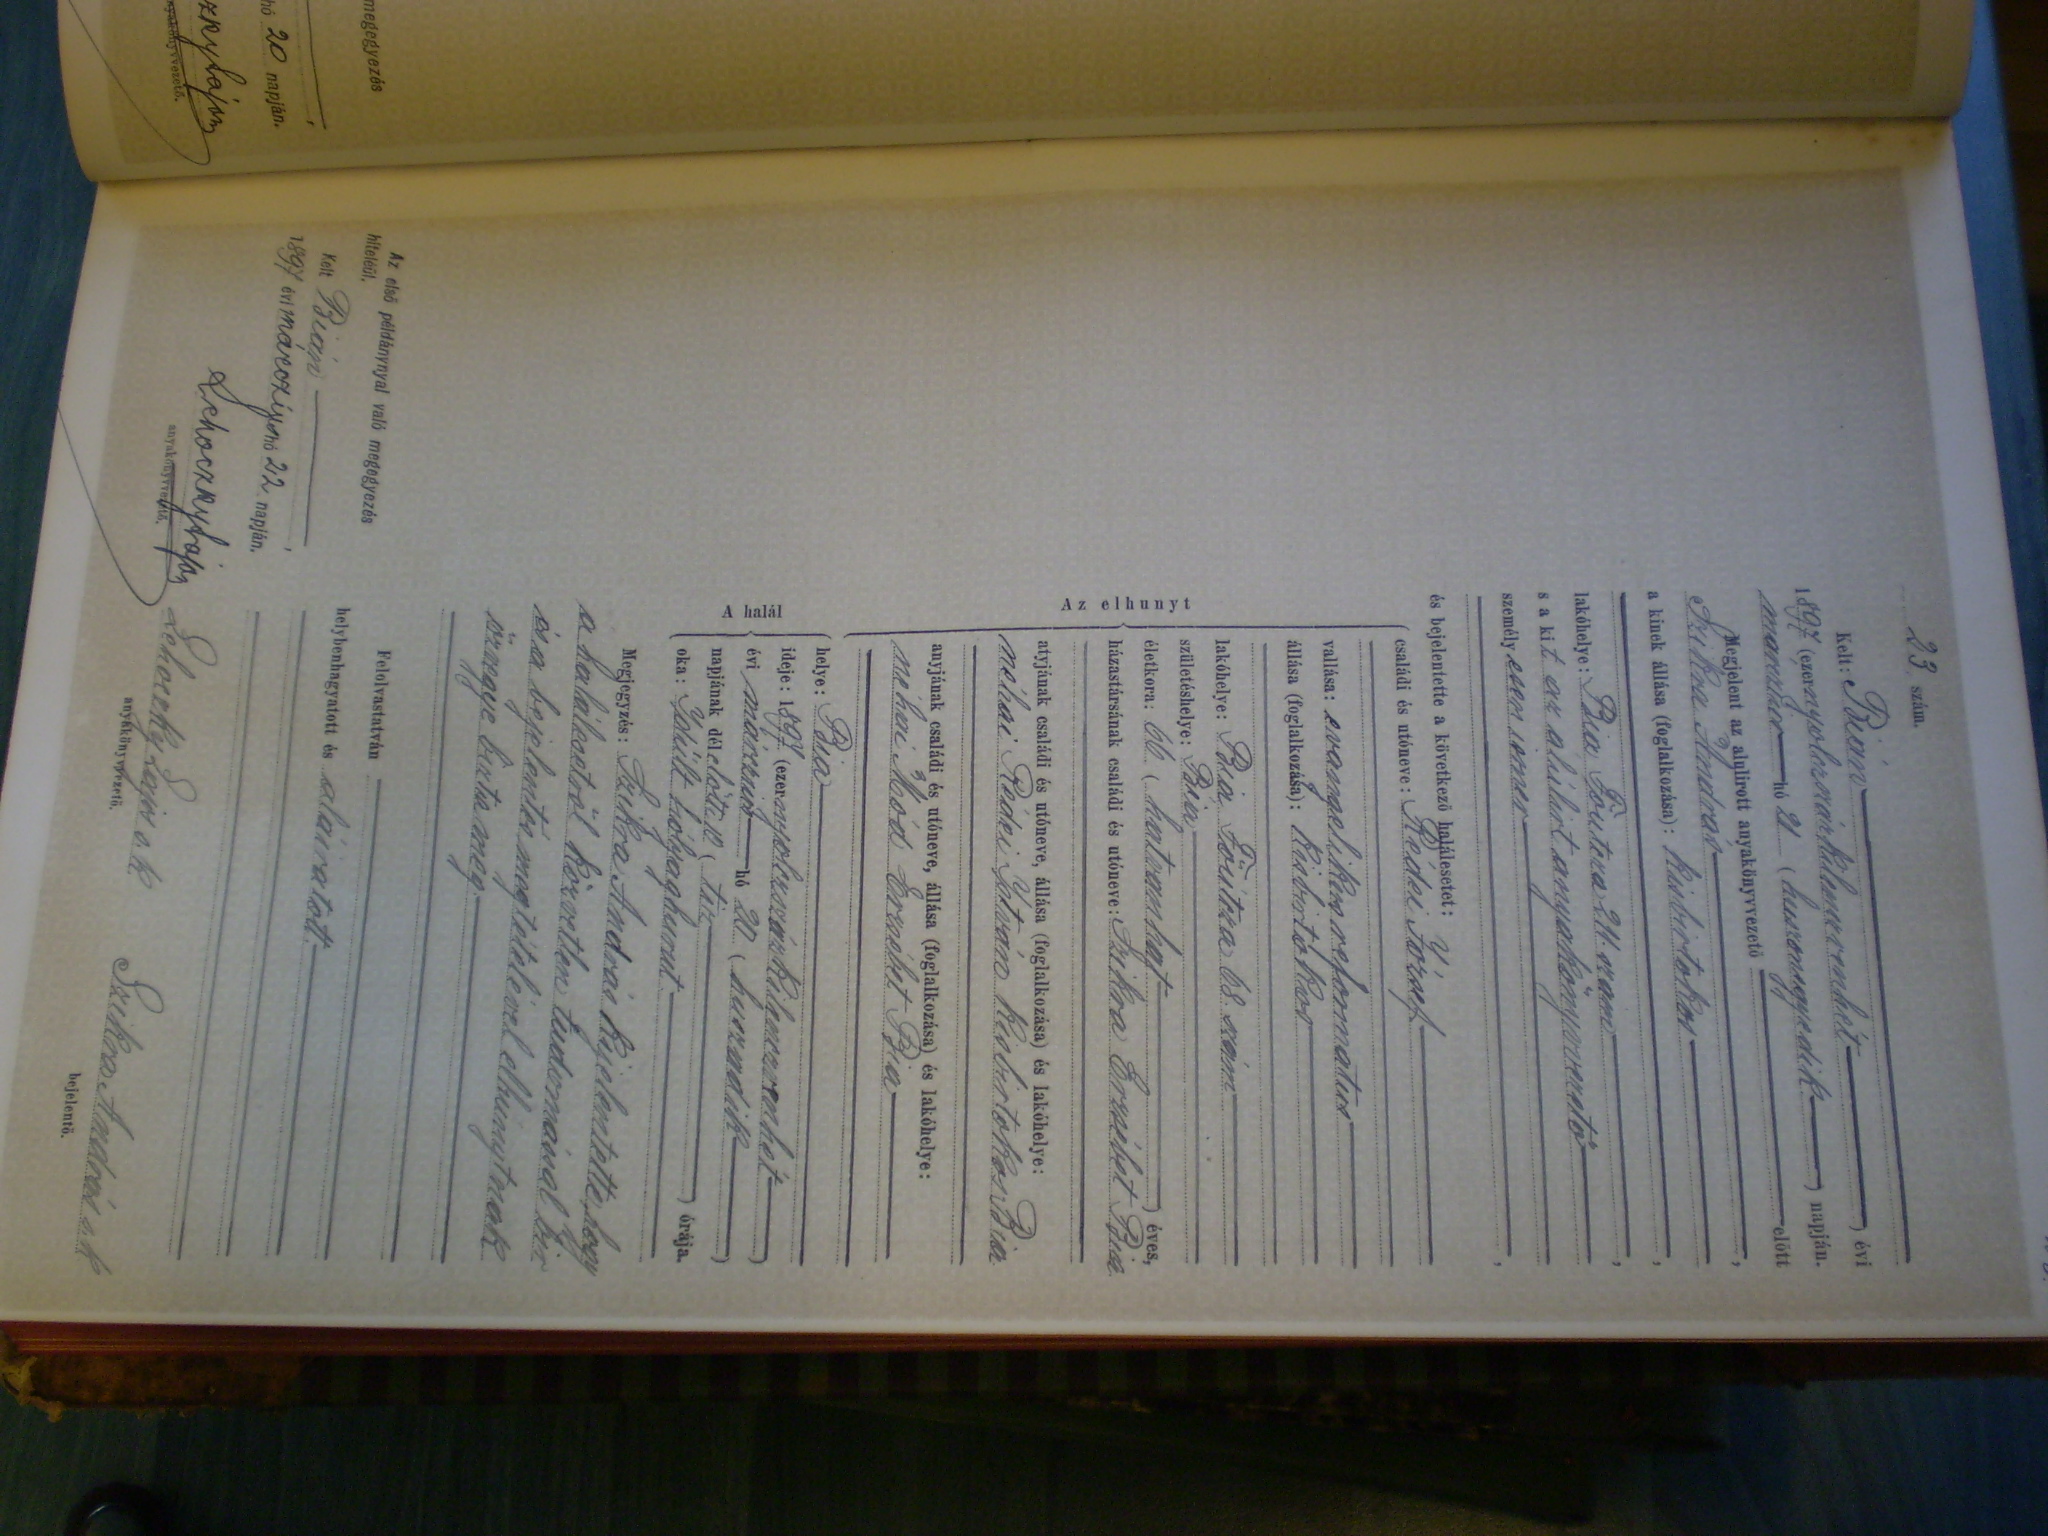 megegyezés
hó 20 napján.
anyakönyvvezető.
23 szám.
Kelt: Bián
évi
1897 (ezernyolczszázkilenczvenhét)
márczius hó 21 (huszonegyedik) napján.
Megjelent az alulirott anyakönyvvezető előtt
Szikra András,
a kinek állása (foglalkozása): kisbirtokos,
lakóhelye: Bia Főutcza 24. szám,
s a kit az alulirt anyakönyvvezető
személyesen ismer,
és bejelentette a következő halálesetet:
családi és utóneve: Rédei József
vallása: evangelikus reformatus
állása (foglalkozása): kisbirtokos
lakóhelye: Bia Főutcza 68. szám
születéshelye: Bia
életkora: 66 (hatvanhat) éves,
házastársának családi és utóneve: Szikra Erzsébet Bia
atyjának családi és utóneve, állása (foglalkozása) és lakóhelye:
néhai Rédei István kisbirtokos Bia
anyjának családi és utóneve, állása (foglalkozása) és lakóhelye:
néhai Moós Erzsébet Bia
Az elhunyt
helye: Bia
ideje: 1897 (ezernyolczszázkilenczvenhét)
évi márczius hó 20 (huszadik)
napjának dél előtti 10 (tíz) órája.
oka: Idült hólyaghurut.
A halál
Megjegyzés: Szikra András kijelentette, hogy
a halálesetről közvetlen tudomással bir
és a bejelentés megtételével elhunytnak
özvegye bizta meg.
Felolvastatván
helybenhagyatott és aláiratott.
Lehoczky Lajos s.k.
anyakönyvvezető.
Szikra András s.k.
bejelentő.
Az első példánynyal való megegyezés
hiteléül.
Kelt Bián,
1897 évi márczius hó 22 napján.
Lehoczky Lajos
anyakönyvvezető.